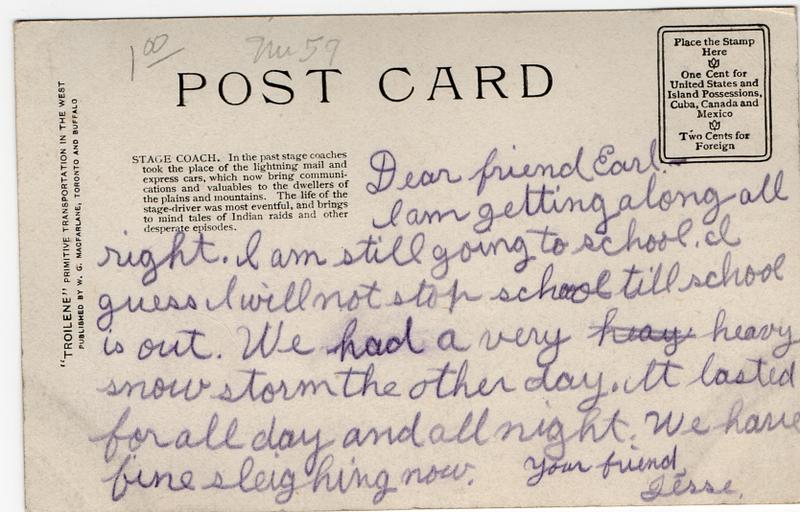 1 00/
POST CARD
Place the Stamp
Here
One Cent for
United States and
Island Possessions,
Cuba, Canada and
Mexico
Two Cents for
Foreign
"TROILENE" PRIMITIVE TRANSPORTATION IN THE WEST
PUBLISHED BY W. G. MACFARLANE, TORONTO AND BUFFALO
STAGE COACH. In the past stage coaches
took the place of the lightning mail and
express cars, which now bring communi-
cations and valuables to the dwellers of
the plains and mountains. The life of the
stage-driver was most eventful, and brings
to mind tales of Indian raids and other
desperate episodes.
Dear friend Earl.-
I am getting along all
right. I am still going to school. I
guess I will not stop school till school
is out. We had a very heay heavy
snow storm the other day. It lasted
for all day and all night. We have
fine sleighing now. Your friend
Jesse.